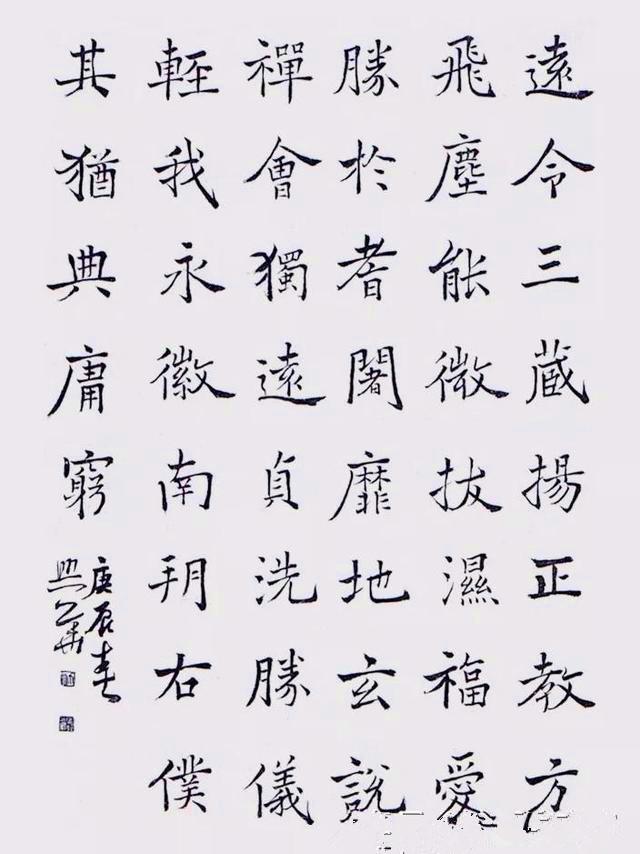 遠令三藏揚正教方
飛塵能微拔濕福愛
勝於耆闍靡地玄說
禪會獨遠貞洗勝儀
輕我永徽南右僕
其猶典庸窮
庚辰春